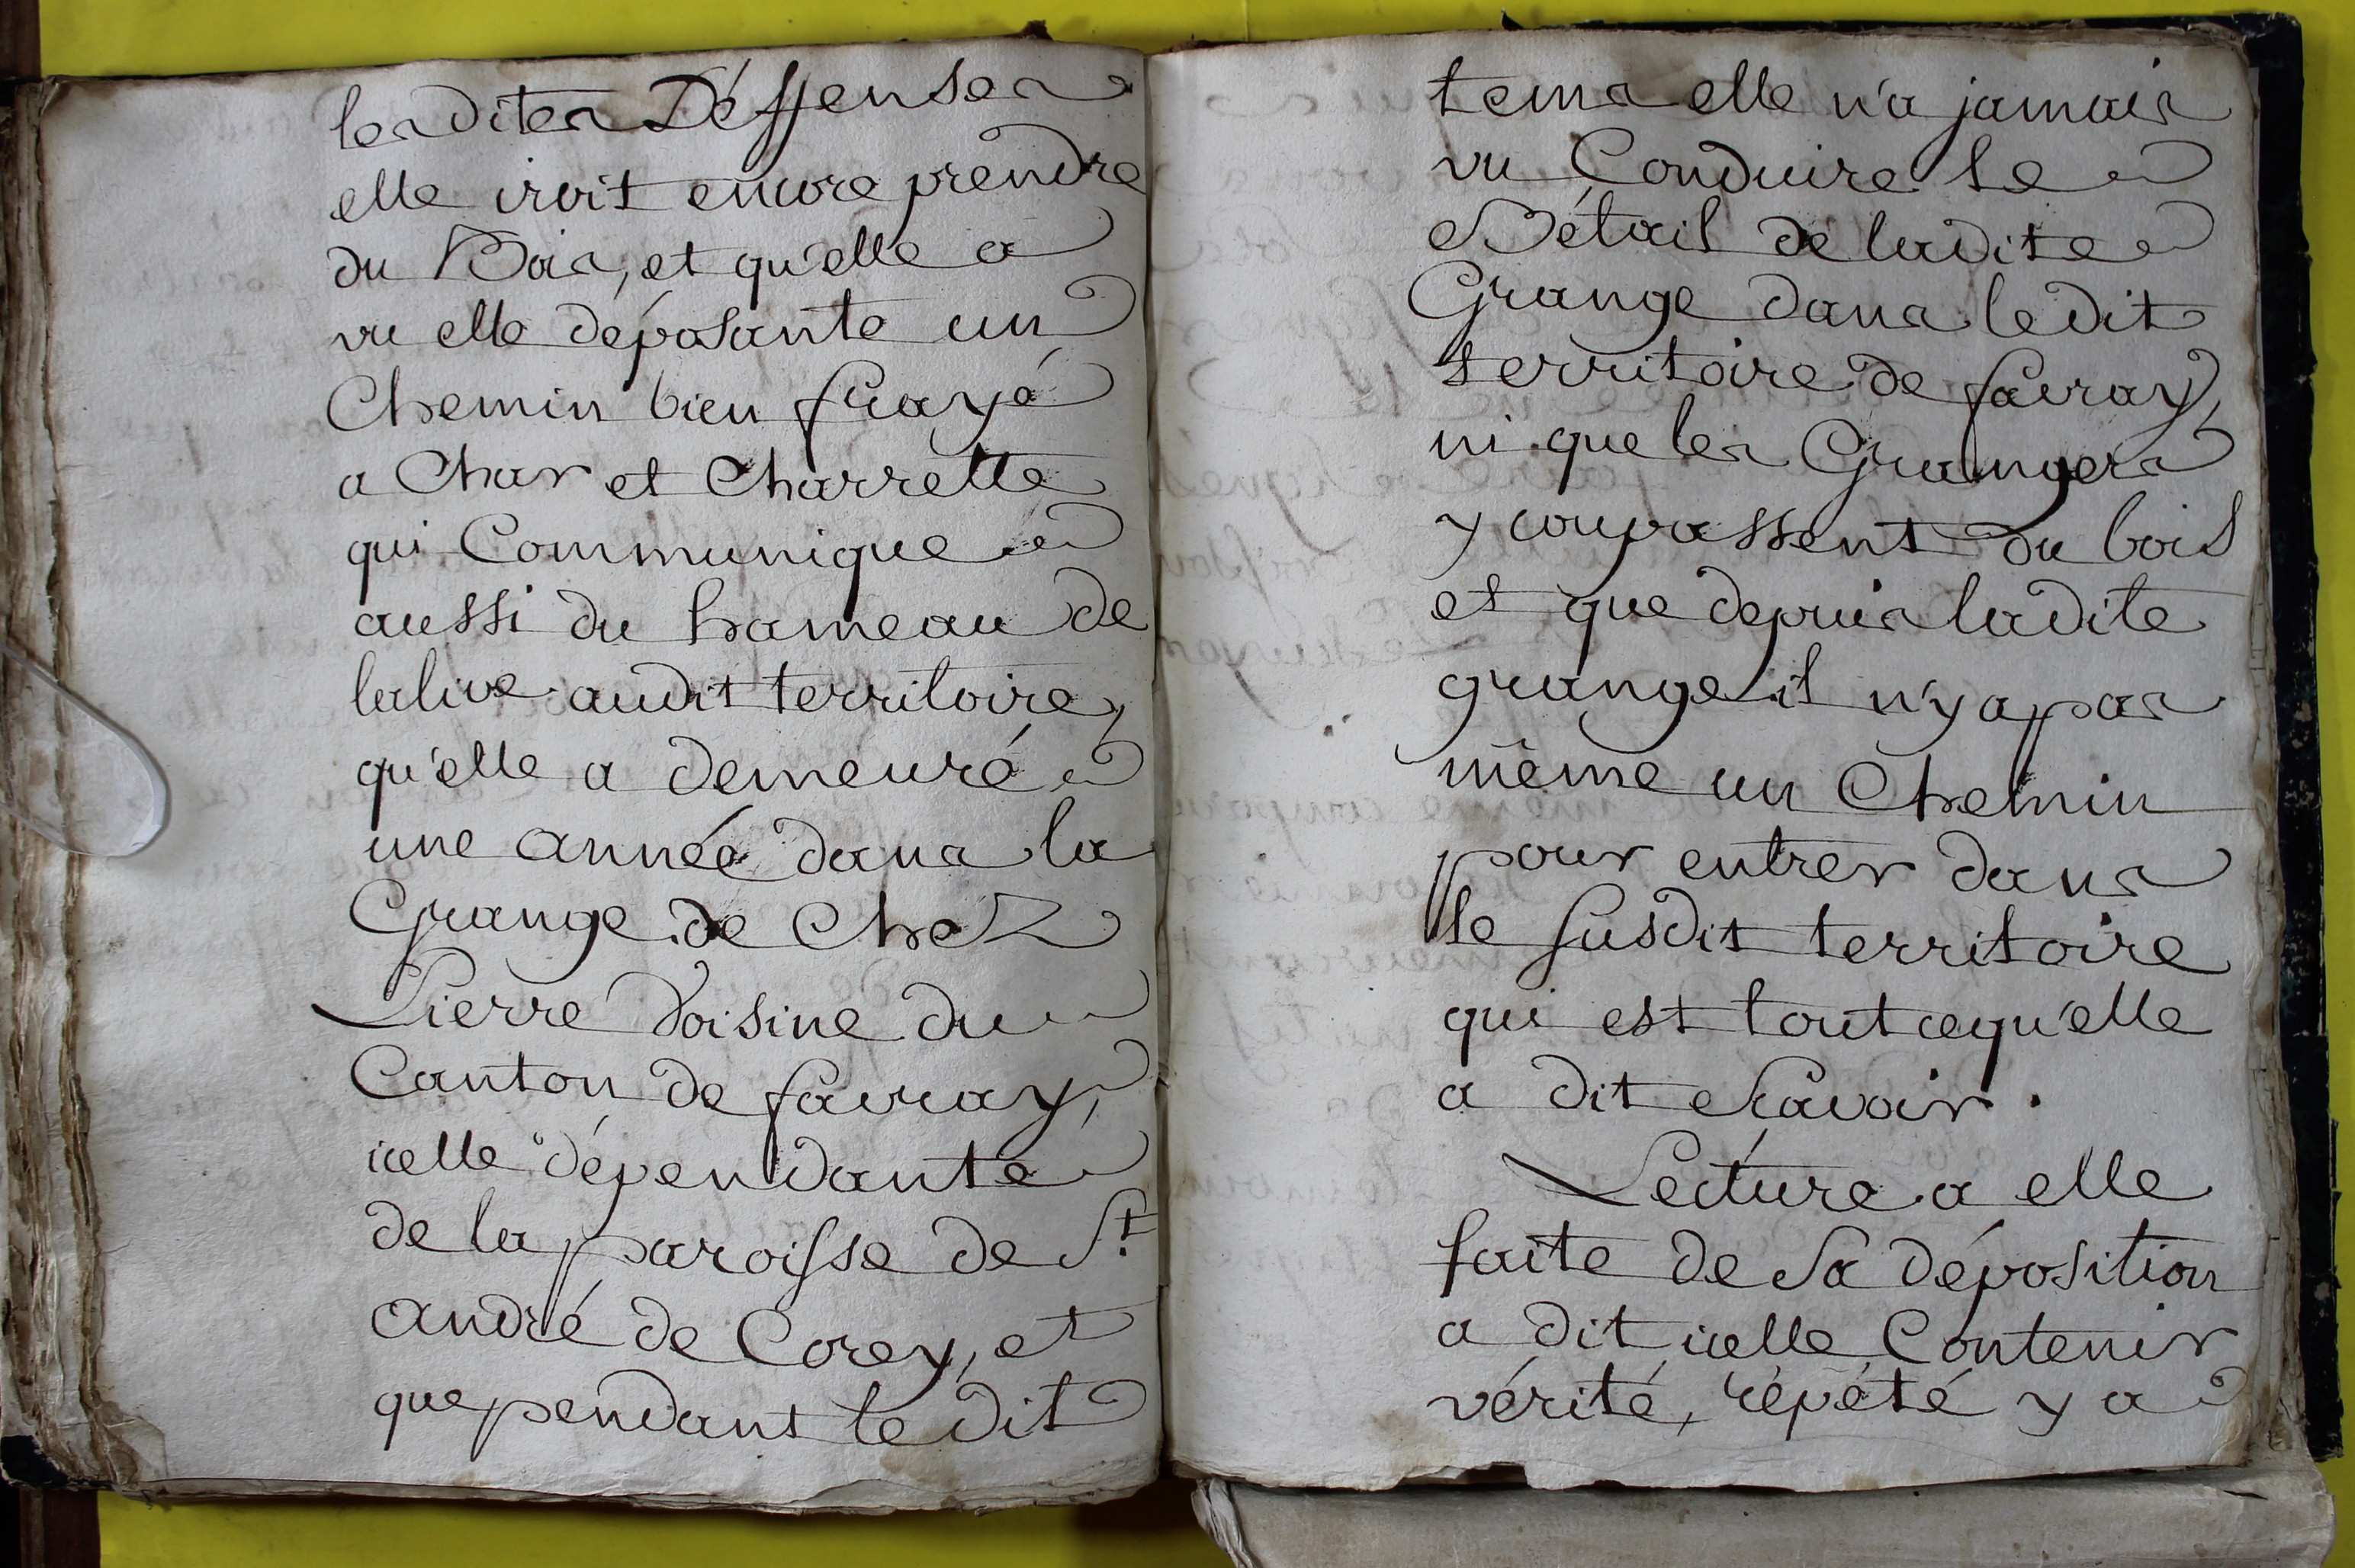 lesdites Déffenses
elle iroit encore prendre
du Bois, et qu'elle a
vu elle déposante un
Chemin bien frayé
a Char et Charrette
qui Communique
aussi du hameau de
lalive audit territoire,
qu'elle a demeuré
une année dans la
Grange de Chez
Pierre Voisine du
Canton de favray,
icelle dépendante
de la paroisse de St.
andré de Corcy, et
que pendant le dit
tems elle n'a jamais
vu Conduire le
Bétail de ladite
Grange dans le dit
territoire de favray,
ni que les Grangers
y coupassent du bois
et que depuis ladite
grange il n'y a pas
même un Chemin
pour entrer dans
le susdit territoire
qui est tout ce qu'elle
a dit scavoir.
Lecture a elle
faite de sa déposition
a dit icelle Contenir
vérité, répété y a